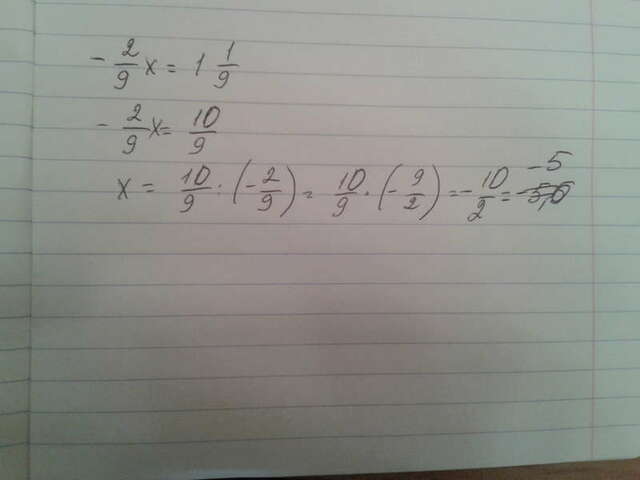 - 2/9 x = 1 1/9
- 2/9 x = 10/9
x = 10/9 : (- 2/9) = 10/9 · (- 9/2) = - 10/2 = -5